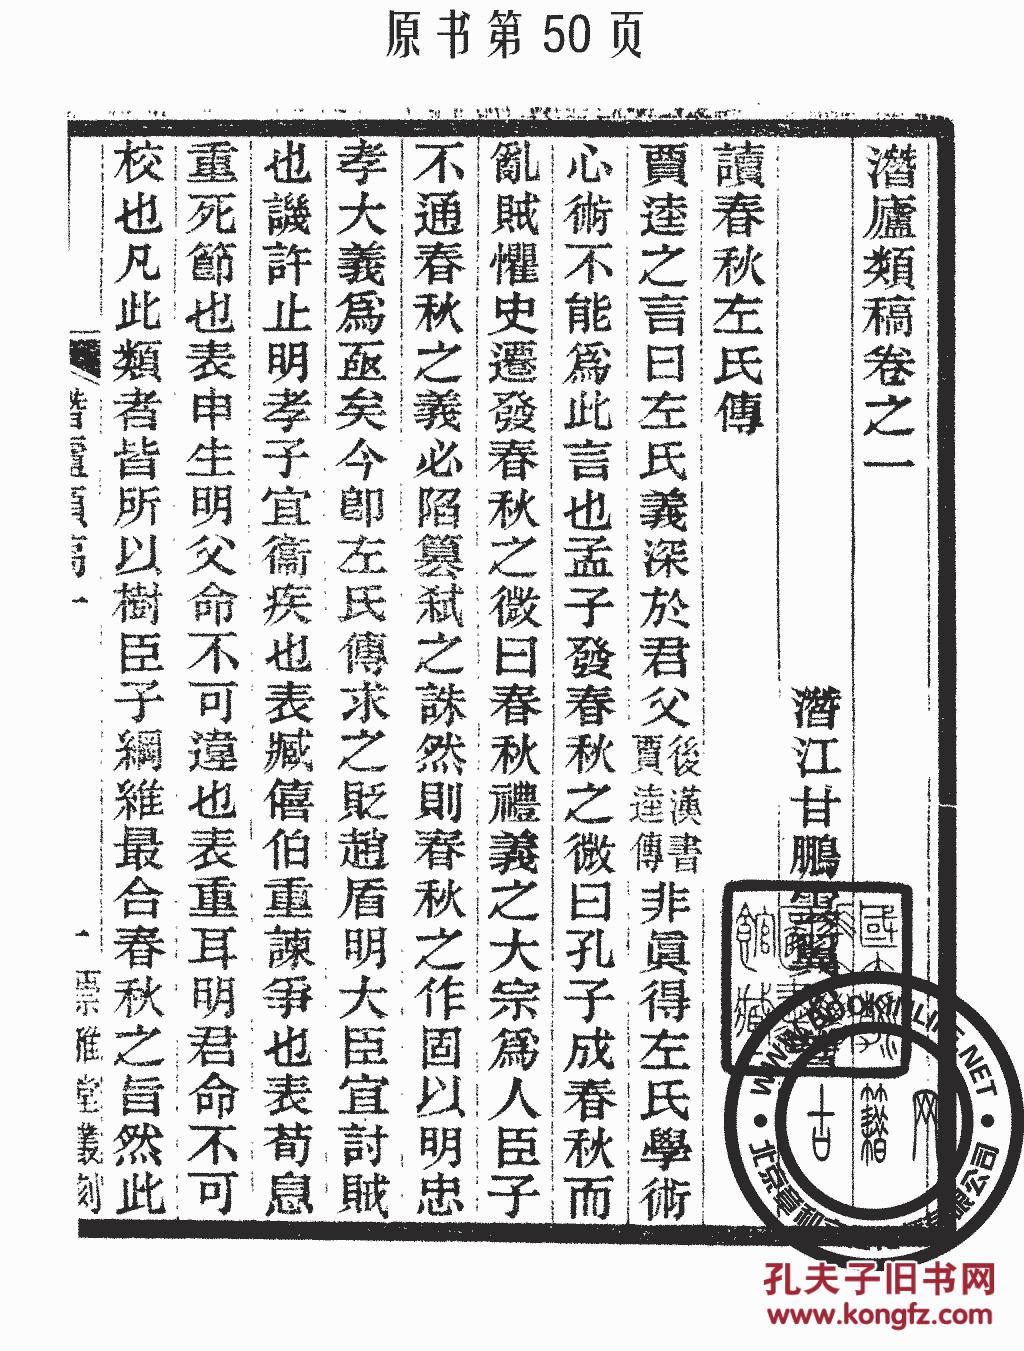 原书第 50 页
潛廬類稿卷之一
潛江甘鵬雲翼
讀春秋左氏傳
賈逵之言曰左氏義深於君父後漢書賈逵傳非眞得左氏學術
心術不能爲此言也孟子發春秋之微曰孔子成春秋而
亂賊懼史遷發春秋之微曰春秋禮義之大宗爲人臣子
不通春秋之義必陷篡弒之誅然則春秋之作固以明忠
孝大義爲亟矣今卽左氏傳求之貶趙盾明大臣宜討賊
也譏許止明孝子宜衞疾也表臧僖伯重諫爭也表荀息
重死節也表申生明父命不可違也表重耳明君命不可
校也凡此類者皆所以樹臣子綱維最合春秋之旨然此
潛廬類稿一
崇雅堂叢刻
WWW.BOOKINLINE.NET
北京
限公司
古籍网
孔夫子旧书网
www.kongfz.com